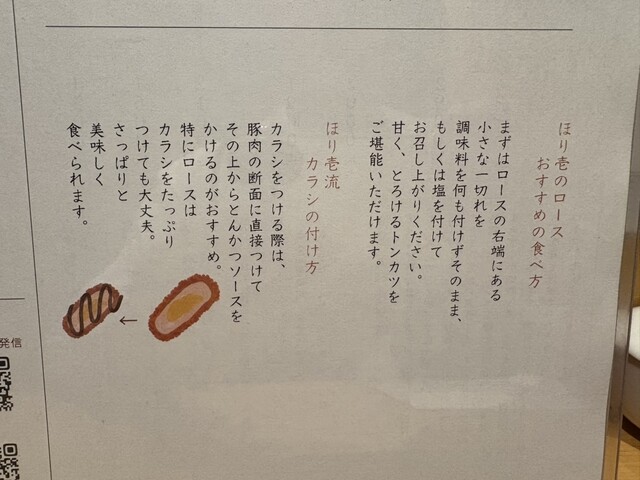 ほり壱のロース
おすすめの食べ方
まずはロースの右端にある
小さな一切れを
調味料を何も付けずそのまま、
もしくは塩を付けて
お召し上がりください。
甘く、とろけるトンカツを
ご堪能いただけます。
ほり壱流
カラシの付け方
カラシをつける際は、
豚肉の断面に直接つけて
その上からとんかつソースを
かけるのがおすすめ。
特にロースは
カラシをたっぷり
つけても大丈夫。
さっぱりと
美味しく
食べられます。
←
発信